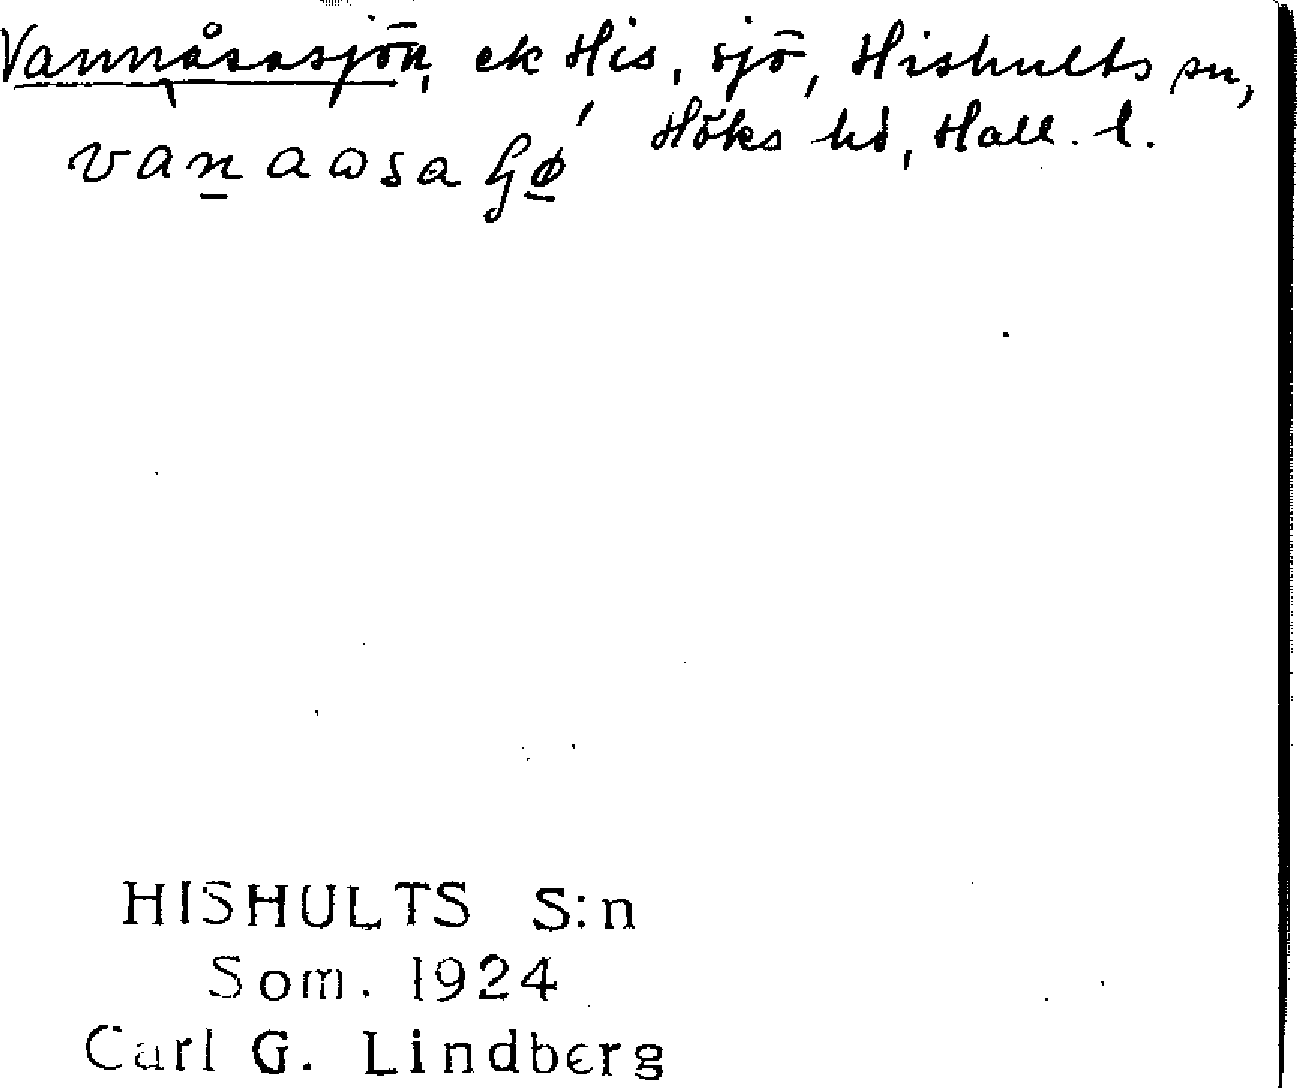 Vannåsasjön, ek His, sjö, Hishults sn,
Höks hd, Hall. l.
vanawsaɧø
HISHULTS S:n
Som. 1924
Carl G. Lindberg